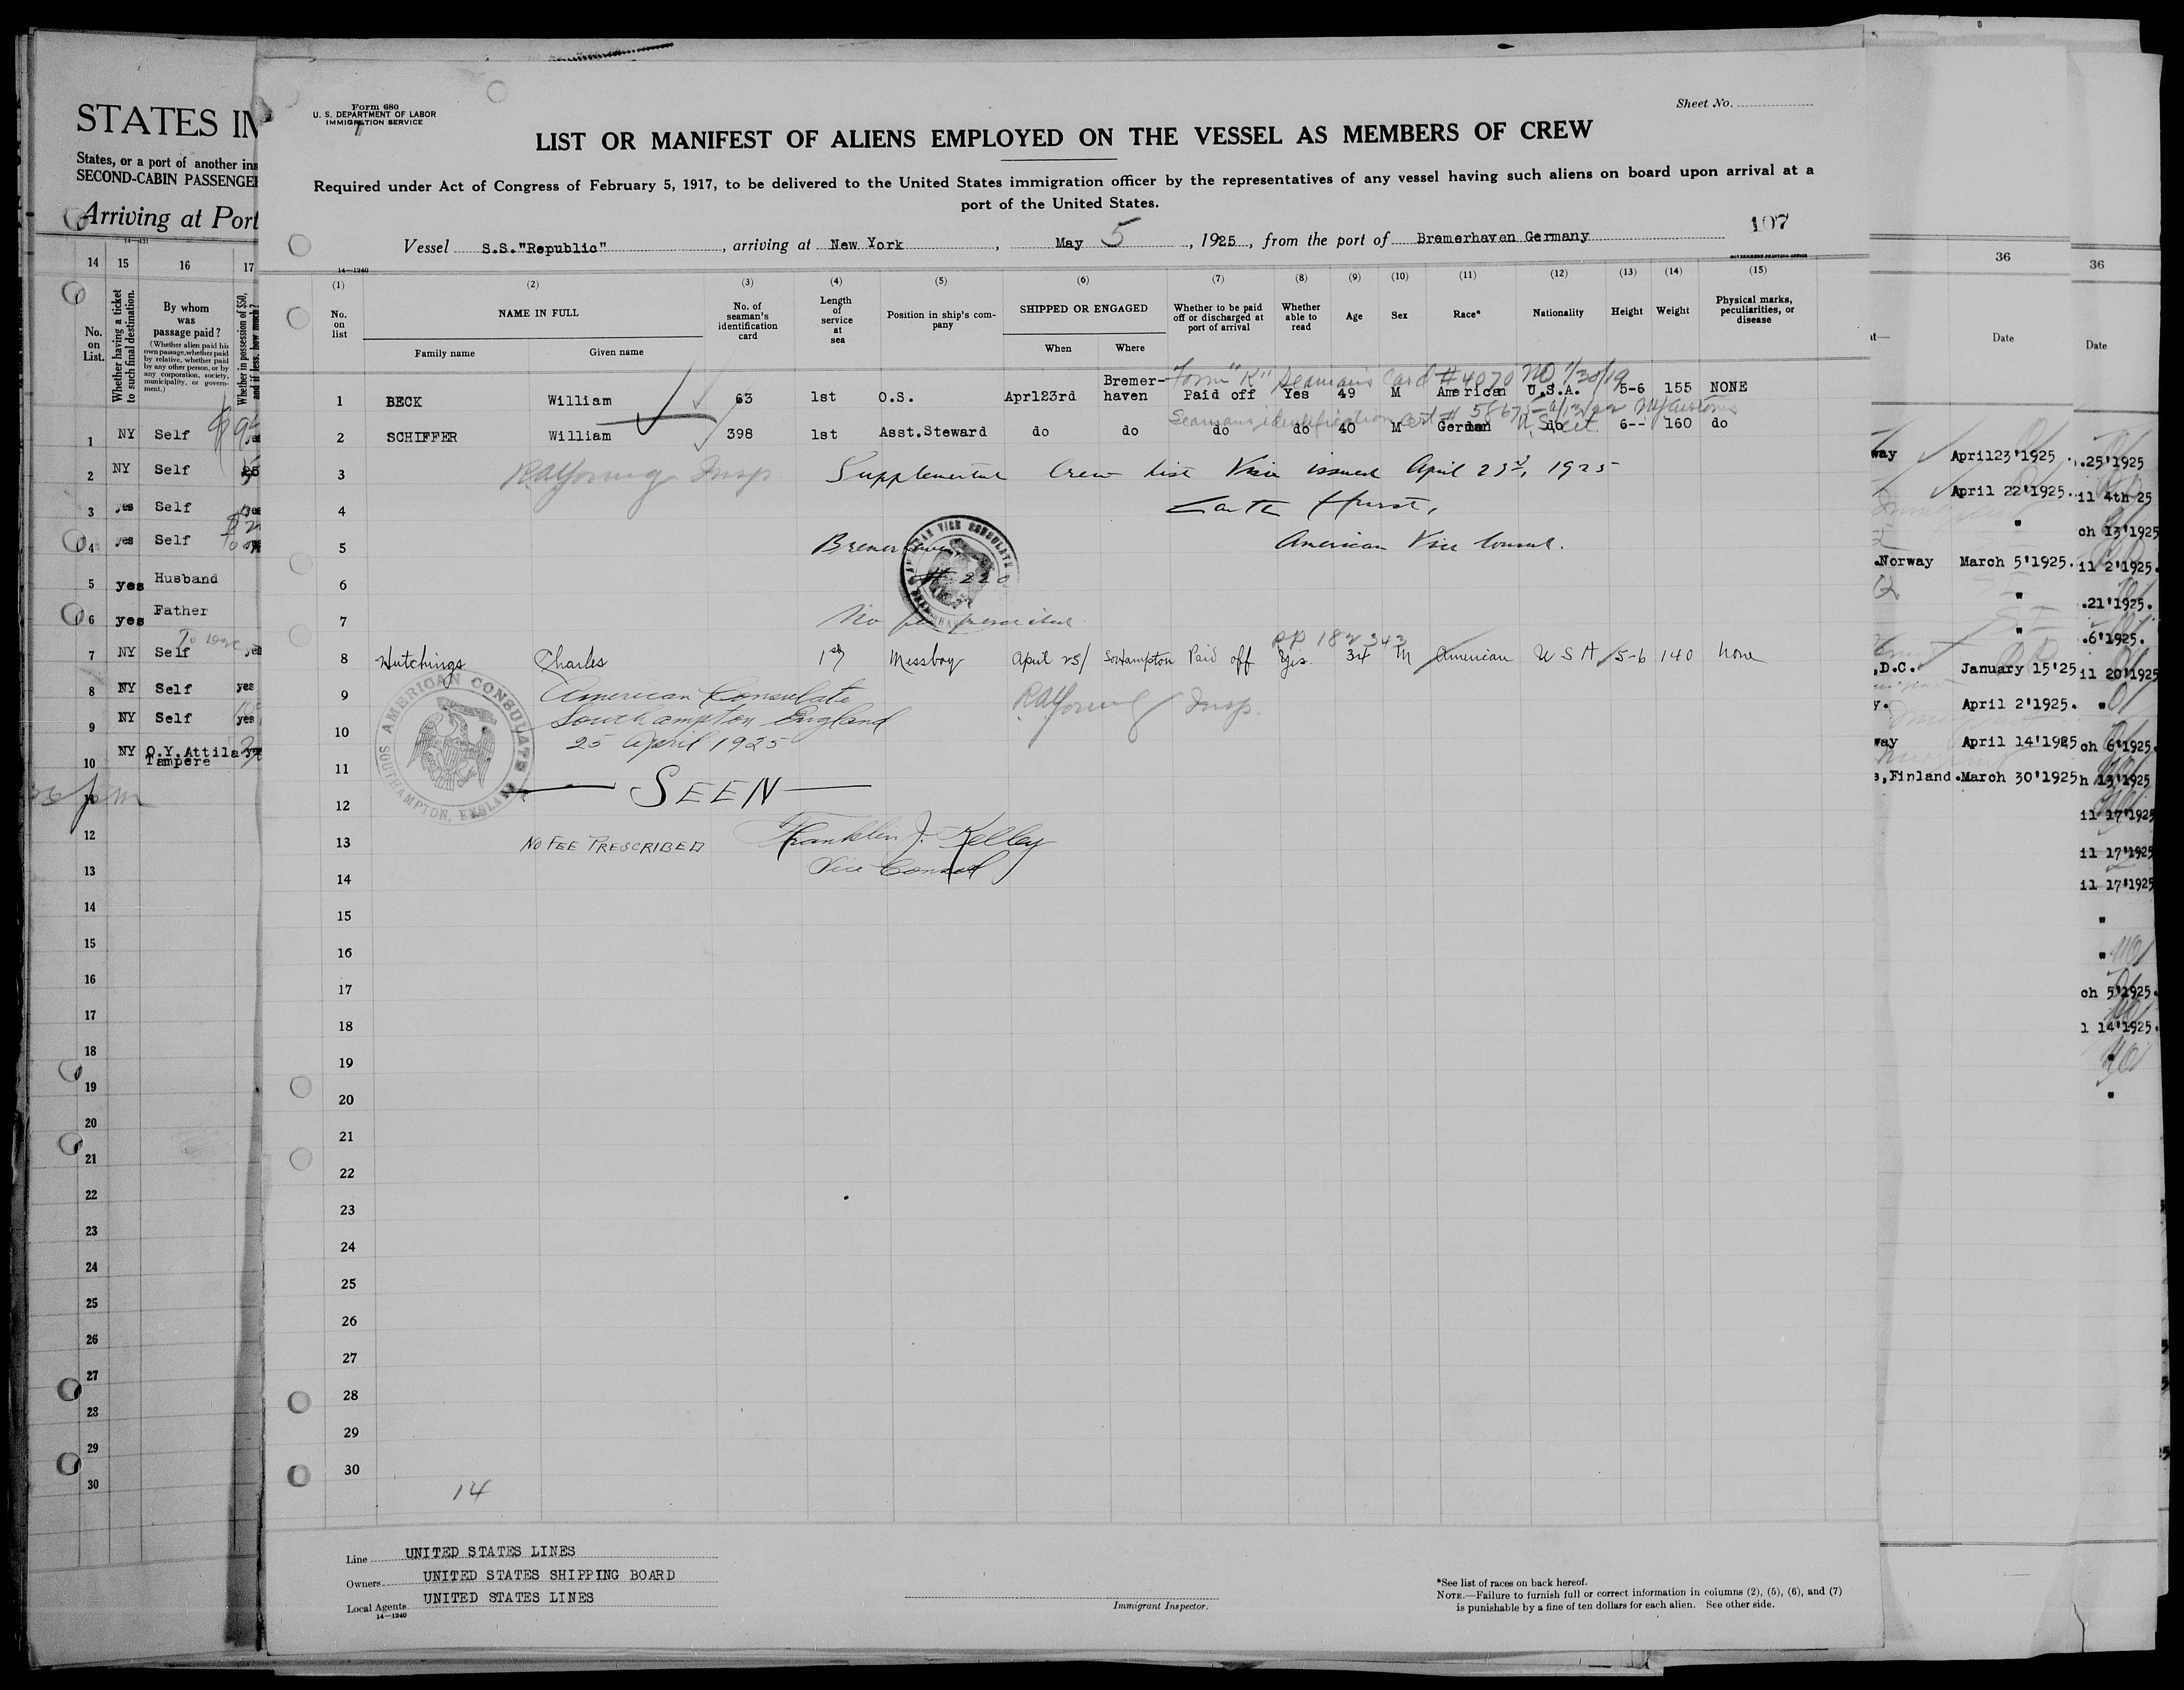 STATES IM
States, or a port of another ins
SECOND-CABIN PASSENGER
Arriving at Port
14 15 16 17
No. on List.
Whether having a ticket to such final destination.
By whom was passage paid?
(Whether alien paid his own passage, whether paid by relative, whether paid by any other person, or by any corporation, society, municipality, or government.)
Whether in possession of $50, and if less, how much?
1 NY Self
2 NY Self 25
3 yes Self
4 yes Self
5 yes Husband
6 yes Father
7 NY Self yes
8 NY Self yes
9 NY Self yes
10 NY O.Y. Attila
Tampere
12
13
14
15
16
17
18
19
20
21
22
23
24
25
26
27
28
29
30
Form 680
U. S. DEPARTMENT OF LABOR
IMMIGRATION SERVICE
Sheet No.
LIST OR MANIFEST OF ALIENS EMPLOYED ON THE VESSEL AS MEMBERS OF CREW
Required under Act of Congress of February 5, 1917, to be delivered to the United States immigration officer by the representatives of any vessel having such aliens on board upon arrival at a
port of the United States.
107
Vessel S.S."Republic", arriving at New York, May 5, 1925, from the port of Bremerhaven Germany
14—1240
GOVERNMENT PRINTING OFFICE
(1) (2) (3) (4) (5) (6) (7) (8) (9) (10) (11) (12) (13) (14) (15)
No. on list
NAME IN FULL
Family name Given name
No. of seaman's identification card
Length of service at sea
Position in ship's company
SHIPPED OR ENGAGED
When Where
Whether to be paid off or discharged at port of arrival
Whether able to read
Age
Sex
Race*
Nationality
Height
Weight
Physical marks, peculiarities, or disease
Form "K" Seaman's Card # 4070 NO 1/30/19
1 BECK William 63 1st O.S. Aprl23rd Bremer-haven Paid off Yes 49 M American U.S.A. 5-6 155 NONE
Seamans identification cert #
2 SCHIFFER William 398 1st Asst.Steward do do do do 40 M German do 6-- 160 do
3 RAYoung Insp. Supplemental Crew list Visa issued April 23d, 1925
4 Hurst,
5 Bremerhaven American Vice Consul.
6 # 220
7 No fee prescribed
PP 182343
8 Hutchings Charles 1st Messboy April 25/ Southampton Paid off Yes. 34 M American U S A 5-6 140 none
9 American Consulate RAYoung Insp.
10 Southampton England
25 April 1925
AMERICAN CONSULATE
SOUTHAMPTON, ENGLAND
11
— SEEN —
12
13 NO FEE PRESCRIBED Franklin J. Kelley
Vice Consul
14
15
16
17
18
19
20
21
22
23
24
25
26
27
28
29
30
14
Line UNITED STATES LINES
Owners UNITED STATES SHIPPING BOARD
Local Agents UNITED STATES LINES
14—1240
Immigrant Inspector.
*See list of races on back hereof.
NOTE.—Failure to furnish full or correct information in columns (2), (5), (6), and (7)
is punishable by a fine of ten dollars for each alien. See other side.
36
Date
way April23'1925
April 22'1925.
"
.Norway March 5'1925.
"
"
,D.C. January 15'25
y. April 2'1925.
way April 14'1925
s,Finland. March 30'1925
36
Date
.25'1925
il 4th 25
ch 13'1925
il 2'1925.
.21'1925.
.6'1925.
il 20'1925
"
ch 6'1925.
h 13'1925
il 17'1925
il 17'1925
il 17'1925
"
"
ch 5'1925.
l 14'1925.
"
"